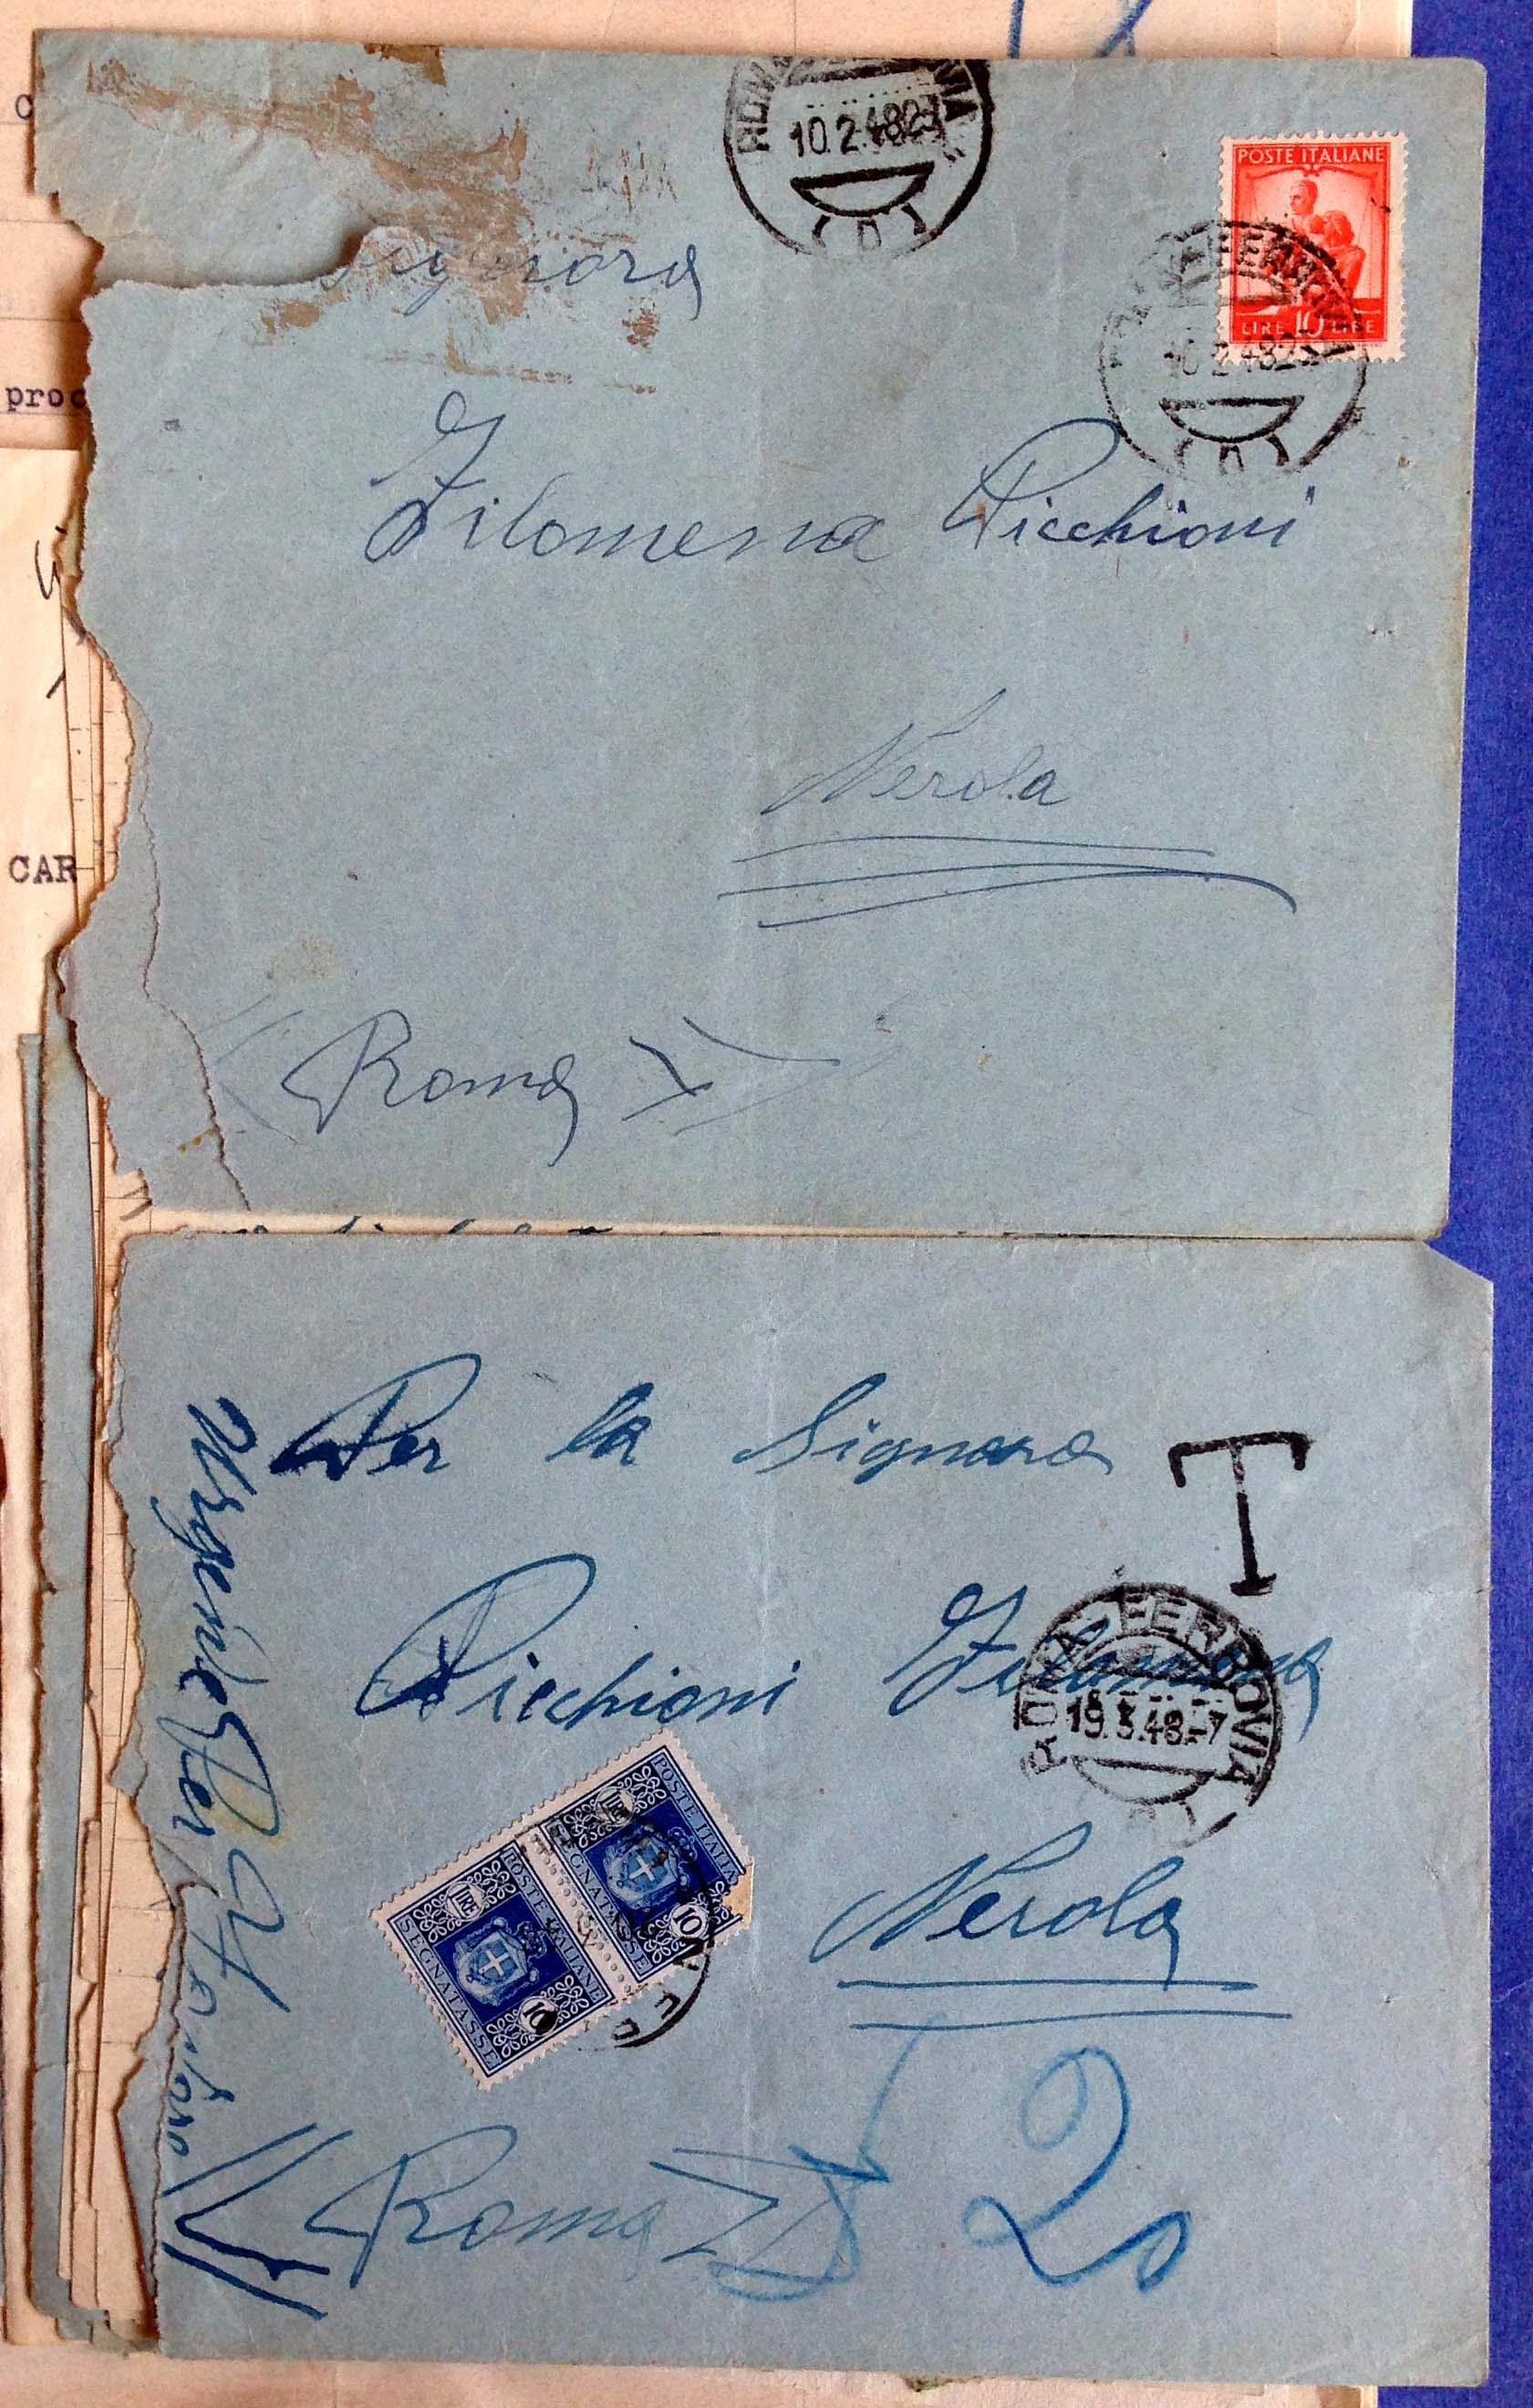 10.2.48.23
POSTE ITALIANE
LIRE 10 LIRE
10.2.48.23
Signora
Filomena Picchioni
proc
Nerola
CAR
(Roma)
Per la Signora
T
Picchioni Filomena
ROMA FERROVIA
19.3.48.-7
Urgente Per
POSTE ITALIANE
SEGNATASSE
LIRE
10
POSTE ITALIANE
SEGNATASSE
LIRE
10
Nerola
(Roma)